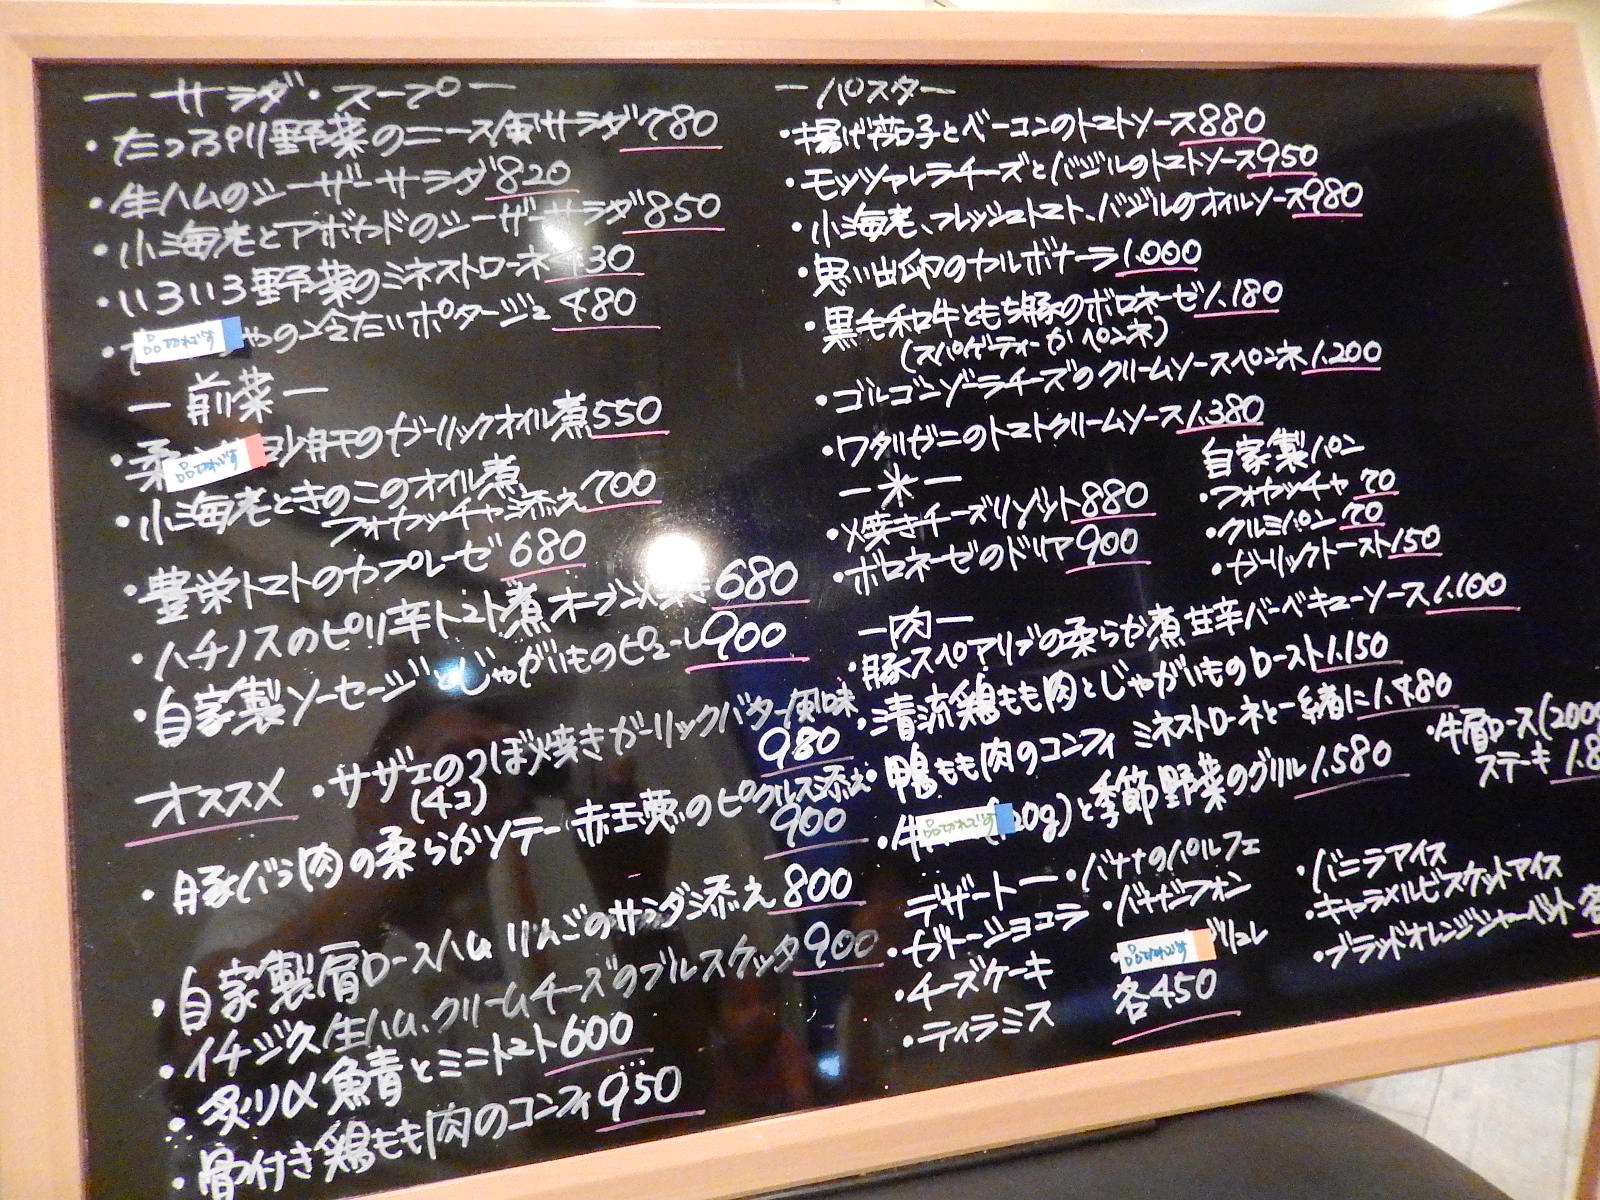 ー サラダ・スープ ー
・たっぷり野菜のニース風サラダ 780
・生ハムのシーザーサラダ 820
・小海老とアボカドのシーザーサラダ 850
・いろいろ野菜のミネストローネ 430
・ 品切れです ゃの冷たいポタージュ 480
ー 前菜 ー
・柔 品切れです 砂肝のガーリックオイル煮 550
・小海老ときのこのオイル煮
フォカッチャ添え 700
・豊栄トマトのカプレーゼ 680
・ハチノスのピリ辛トマト煮 オーブン焼き 680
・自家製ソーセージとじゃがいものピューレ 900
オススメ ・サザエのつぼ焼きガーリックバター風味
(4コ) 980
・豚バラ肉の柔らかソテー 赤玉葱のピクルス添え
900
・自家製肩ロースハム りんごのサラダ添え 800
・イチジク、生ハム、クリームチーズのブルスケッタ 900
・炙り〆鯖とミニトマト 600
・骨付き鶏もも肉のコンフィ 950
ー パスター
・揚げ茄子とベーコンのトマトソース 880
・モッツァレラチーズとバジルのトマトソース 950
・小海老、フレッシュトマト、バジルのオイルソース 980
・思い出卵のカルボナーラ 1.000
・黒毛和牛ともち豚のボロネーゼ 1.180
(スパゲティーかペンネ)
・ゴルゴンゾーラチーズのクリームソースペンネ 1.200
・ワタリガニのトマトクリームソース 1.380
ー 米 ー
・焼きチーズリゾット 880
・ボロネーゼのドリア 900
自家製パン
・フォカッチャ 70
・クルミパン 70
・ガーリックトースト 150
ー 肉 ー
・豚スペアリブの柔らか煮 甘辛バーベキューソース 1.100
・清流鶏もも肉とじゃがいものロースト 1.150
・鴨もも肉のコンフィ ミネストローネと一緒に 1.480
・牛 品切れです 20g)と季節野菜のグリル 1.580
・牛肩ロース(200g
ステーキ 1.8
デザートー
・ガトーショコラ
・チーズケーキ
・ティラミス
・バナナのパルフェ
・バナナシフォン
・ 品切れです リュレ
各450
・バニラアイス
・キャラメルビスケットアイス
・ブラッドオレンジシャーベット 各